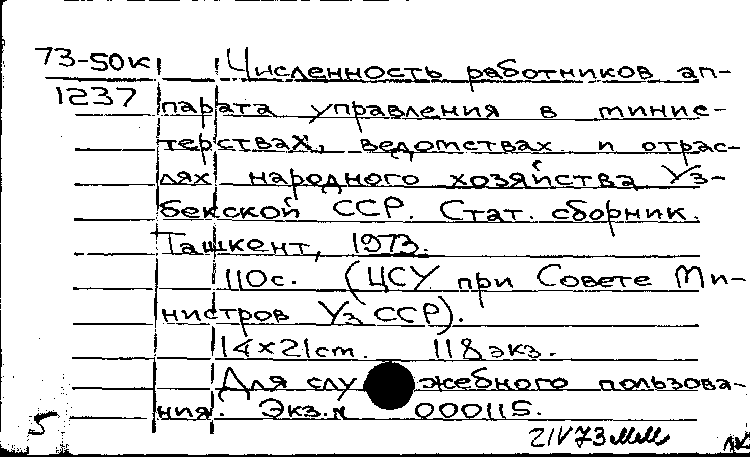 73-50к Численность работников ап-
1237 парата управления в минис-
терствах, ведомствах и отрас-
лях народного хозяйства Уз-
бекской ССР. Стат. сборник.
Ташкент, 1973.
110с. (ЦСУ при Совете Ми-
нистров УзССР).
14×21cm. 118 экз.
Для служебного пользова-
ния. Экз.N 000115.
5